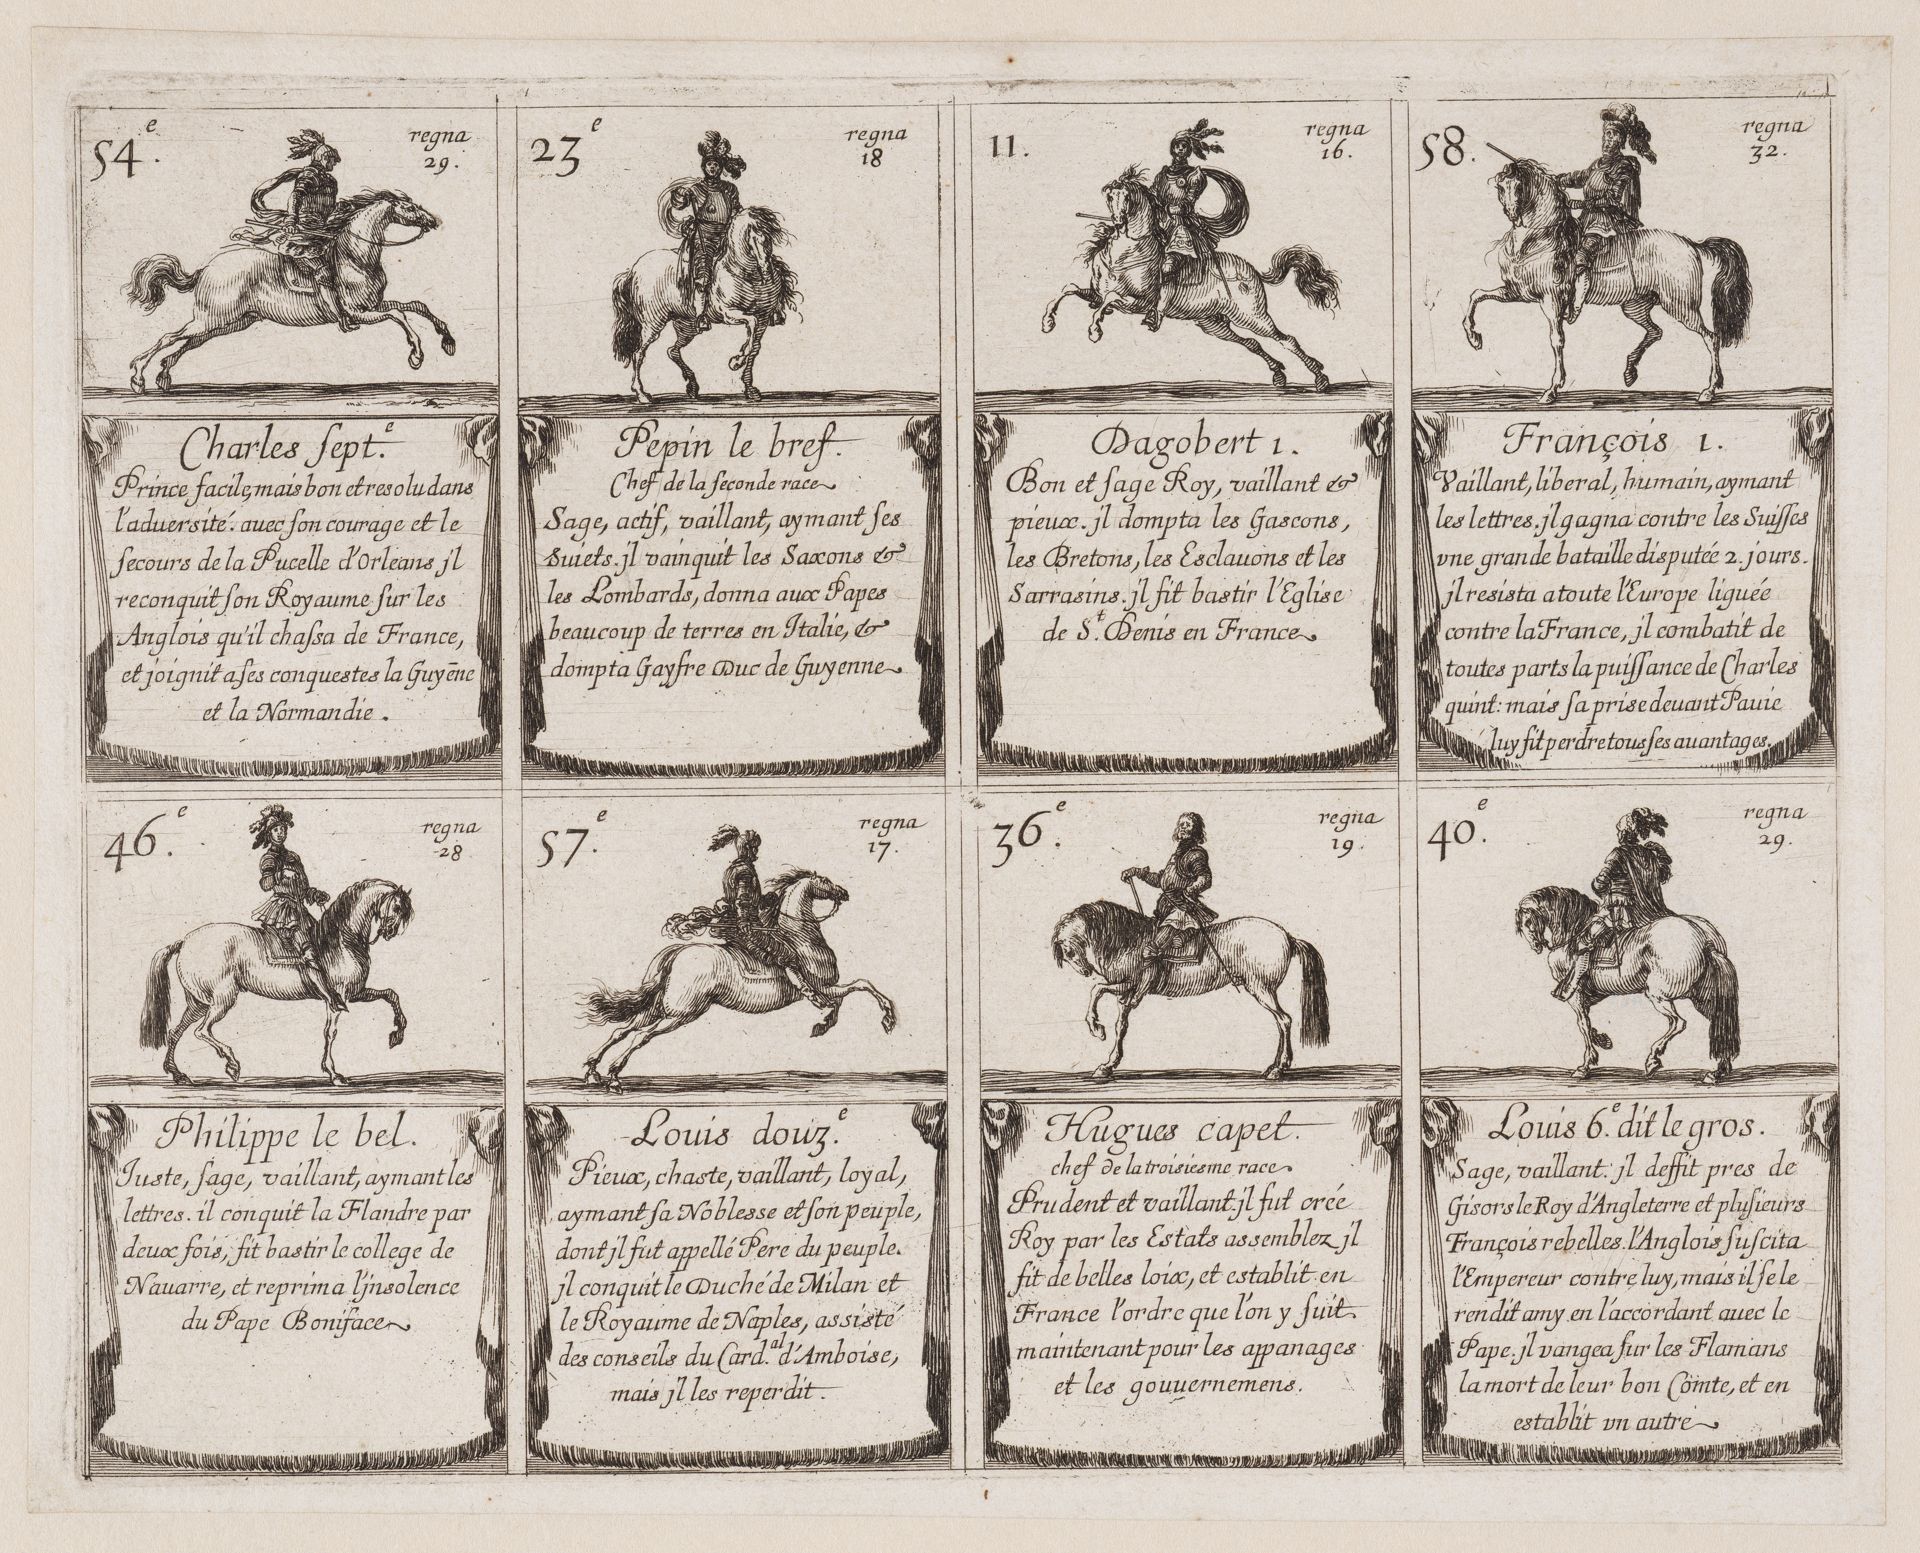 54.e
regna
29.
Charles sept.e
Prince facile, mais bon et resolu dans
l'aduersité. auec son courage et le
secours de la Pucelle d'Orleans jl
reconquit son Royaume sur les
Anglois qu'il chassa de France,
et joignit a ses conquestes la Guyēne
et la Normandie.
23e
regna
18
Pepin le bref.
Chef de la seconde race
Sage, actif, vaillant, aymant ses
suiets. jl vainquit les Saxons &
les Lombards, donna aux Papes
beaucoup de terres en Italie, &
dompta Gayfre Duc de Guyenne
11.
regna
16.
Dagobert 1.
Bon et sage Roy, vaillant &
pieux. jl dompta les Gascons,
les Bretons, les Esclauons et les
Sarrasins. jl fit bastir l'Eglise
de S.t Denis en France
58.
regna
32.
François 1.
Vaillant, liberal, humain, aymant
les lettres. jl gagna contre les Suisses
vne grande bataille disputée 2. jours.
jl resista a toute l'Europe liguée
contre la France, jl combatit de
toutes parts la puissance de Charles
quint: mais sa prise deuant Pauie
luy fit perdre tous ses auantages.
46.e
regna
28
Philippe le bel.
Iuste, sage, vaillant, aymant les
lettres. il conquit la Flandre par
deux fois, fit bastir le college de
Nauarre, et reprima l'jnsolence
du Pape Boniface
57.e
regna
17.
Louis douz.e
Pieux, chaste, vaillant, loyal,
aymant sa Noblesse et son peuple,
dont jl fut appellé Pere du peuple.
jl conquit le Duché de Milan et
le Royaume de Naples, assisté
des conseils du Card.al d'Amboise,
mais jl les reperdit.
36.e
regna
19.
Hugues capet.
chef de la troisiesme race
Prudent et vaillant. jl fut crée
Roy par les Estats assemblez jl
fit de belles loix, et establit en
France l'ordre que l'on y suit
maintenant pour les appanages
et les gouuernemens.
40.e
regna
29.
Louis 6.e dit le gros.
Sage, vaillant: jl deffit pres de
Gisors le Roy d'Angleterre et plusieurs
François rebelles. l'Anglois suscita
l'Empereur contre luy, mais il se le
rendit amy en l'accordant auec le
Pape. jl vangea sur les Flamans
la mort de leur bon Comte, et en
establit vn autre